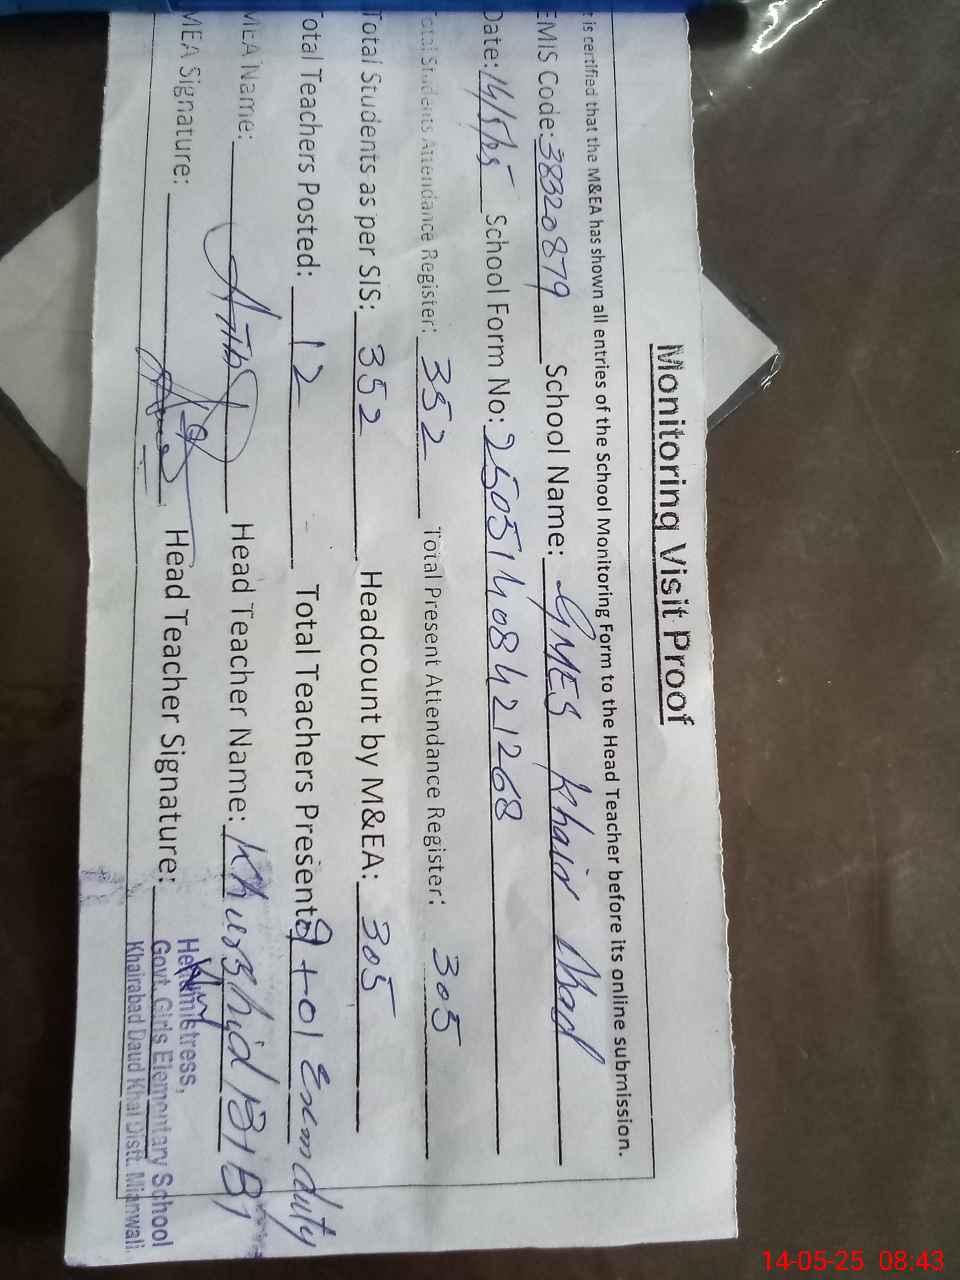 Monitoring Visit Proof
t is certified that the M&EA has shown all entries of the School Monitoring Form to the Head Teacher before its online submission.
EMIS Code: 38320879 School Name: GMES Khair Abad
Date: 14/5/25 School Form No: 25051408421268
Total Students Attendance Register: 352 Total Present Attendance Register: 305
Total Students as per SIS: 352 Headcount by M&EA: 305
Total Teachers Posted: 12 Total Teachers Present: 9+01 Exam duty
MEA Name: Head Teacher Name: Khurshid BiBi
MEA Signature: Head Teacher Signature:
Headmistress,
Govt. Girls Elementary School
Khairabad Daud Khal Distt. Mianwali.
14-05-25 08:43